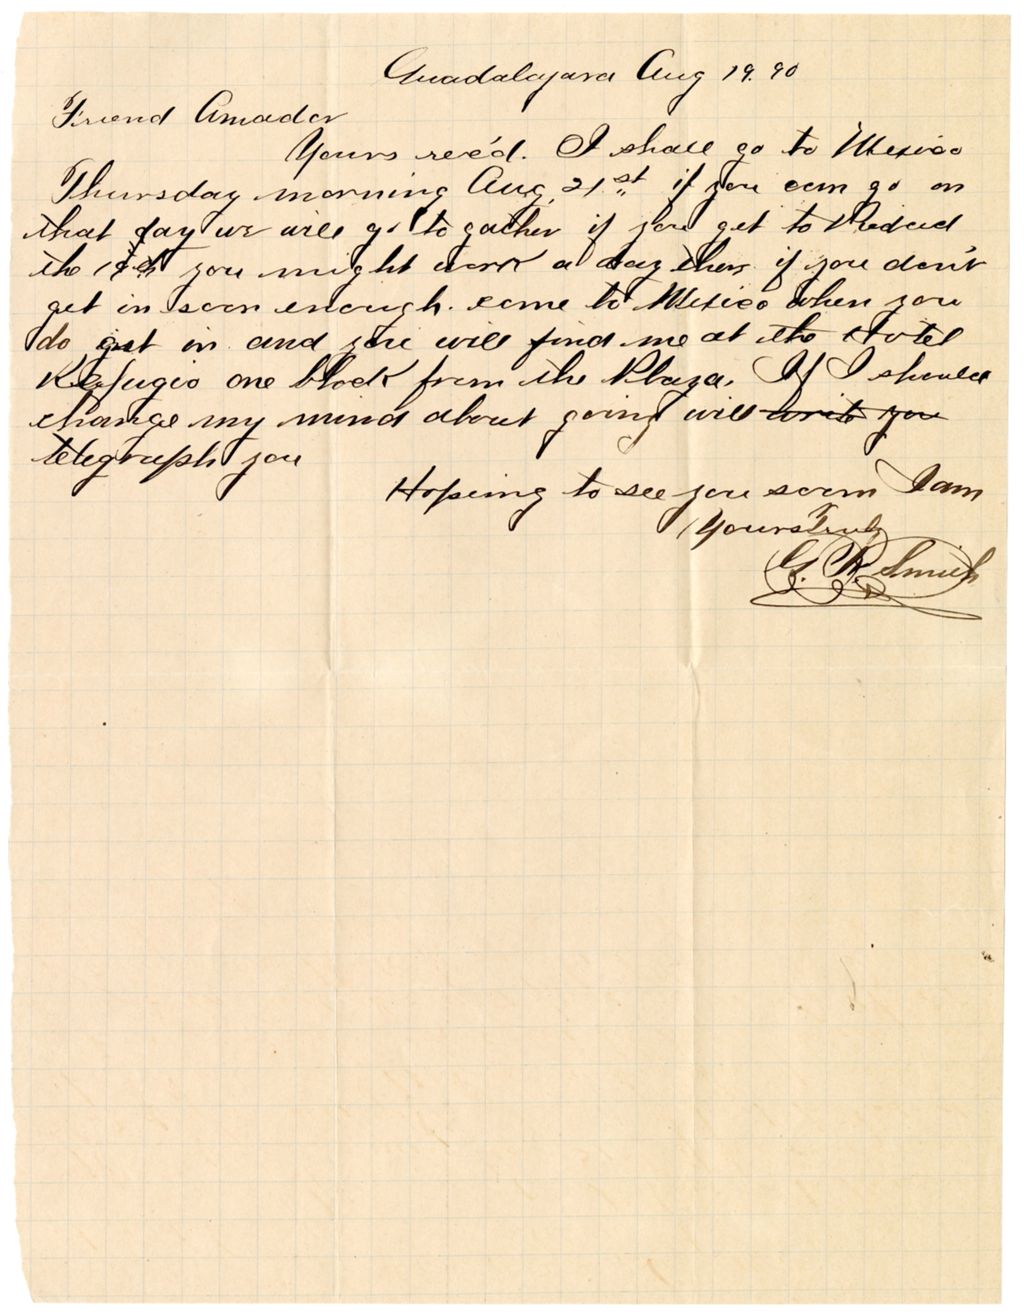 Guadalajara Aug 19. 90
Friend Amador
Yours rec'd. I shall go to Mexico
Thursday morning Aug, 21st if you can go on
that day we will go to gather if you get to
the you might work a day there if you don't
get in soon enough. come to Mexico when you
do get in and you will find me at the Hotel
Refugio one block from the Plaza. If I should
change my mind about going will write you
telegraph you
Hoping to see you soon I am
Yours Truly
G. R. Smith